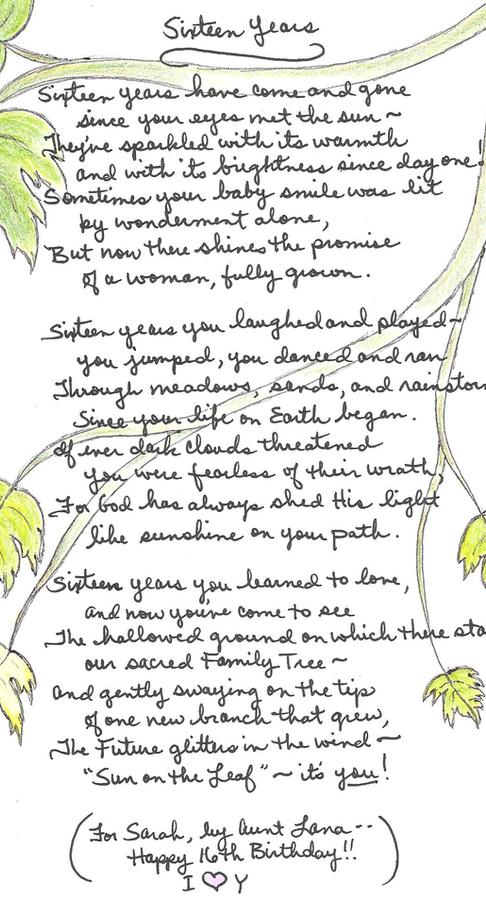 Sixteen Years
Sixteen years have come and gone
since your eyes met the sun ~
They've sparkled with its warmth
and with its brightness since day one!
Sometimes your baby smile was lit
by wonderment alone,
But now there shines the promise
of a woman, fully grown.
Sixteen years you laughed and played ~
you jumped, you danced and ran
Through meadows, sands, and rainstor
Since your life on Earth began.
If ever dark clouds threatened
you were fearless of their wrath,
For God has always shed His light
like sunshine on your path.
Sixteen years you learned to love,
and now you've come to see
The hallowed ground on which there sta
our sacred Family Tree ~
and gently swaying on the tip
of one new branch that grew,
The Future glitters in the wind ~
"Sun on the Leaf" ~ it's you!
(For Sarah, by Aunt Lana --
Happy 16th Birthday!!
I ♡ Y)